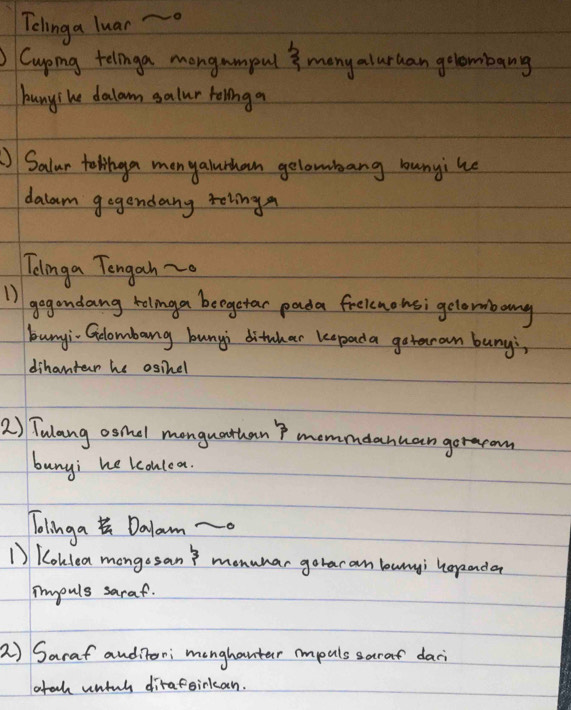 Telinga luar ~o
) Cuping telinga mengumpul & menyalurkan gelombang
bunyi ke dalam salur telinga
2) Salur telinga menyalurkan gelombang bunyi ke
dalam gegendang telinga
Telinga Tengah ~o
1) gegendang telinga bergetar pada frekuensi gelombang
bunyi. Gelombang bunyi ditukar kepada getaran bunyi,
dihantar ke osikel
2) Tulang osikel menguatkan & memindahkan getaran
bunyi ke koklea.
Telinga Dalam ~o
1) Koklea mengesan & menukar getaran bunyi kepada
impuls saraf.
2) Saraf auditori menghantar impuls saraf dari
otak untuk ditafsirkan.